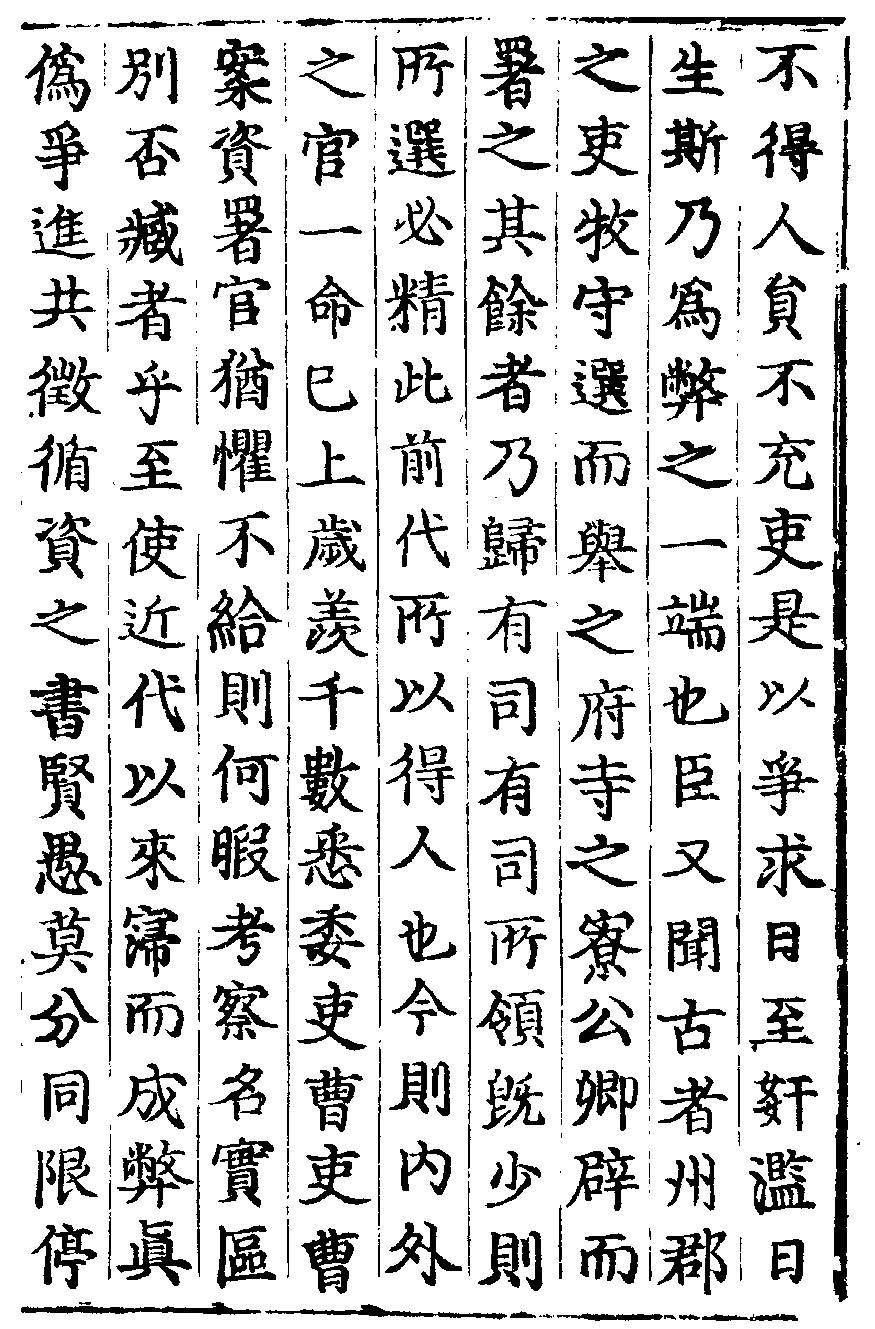 不得人貟不充吏是以爭求日至姧濫日
生斯乃爲弊之一端也臣又聞古者州郡
之吏牧守選而舉之府寺之寮公卿辟而
署之其餘者乃歸有司有司所領旣少則
所選必精此前代所以得人也今則内外
之官一命已上歲羨千數悉委吏曹吏曹
案資署官猶懼不給則何暇考察名實區
别否臧者乎至使近代以來寖而成弊眞
僞爭進共徵循資之書賢愚莫分同限停